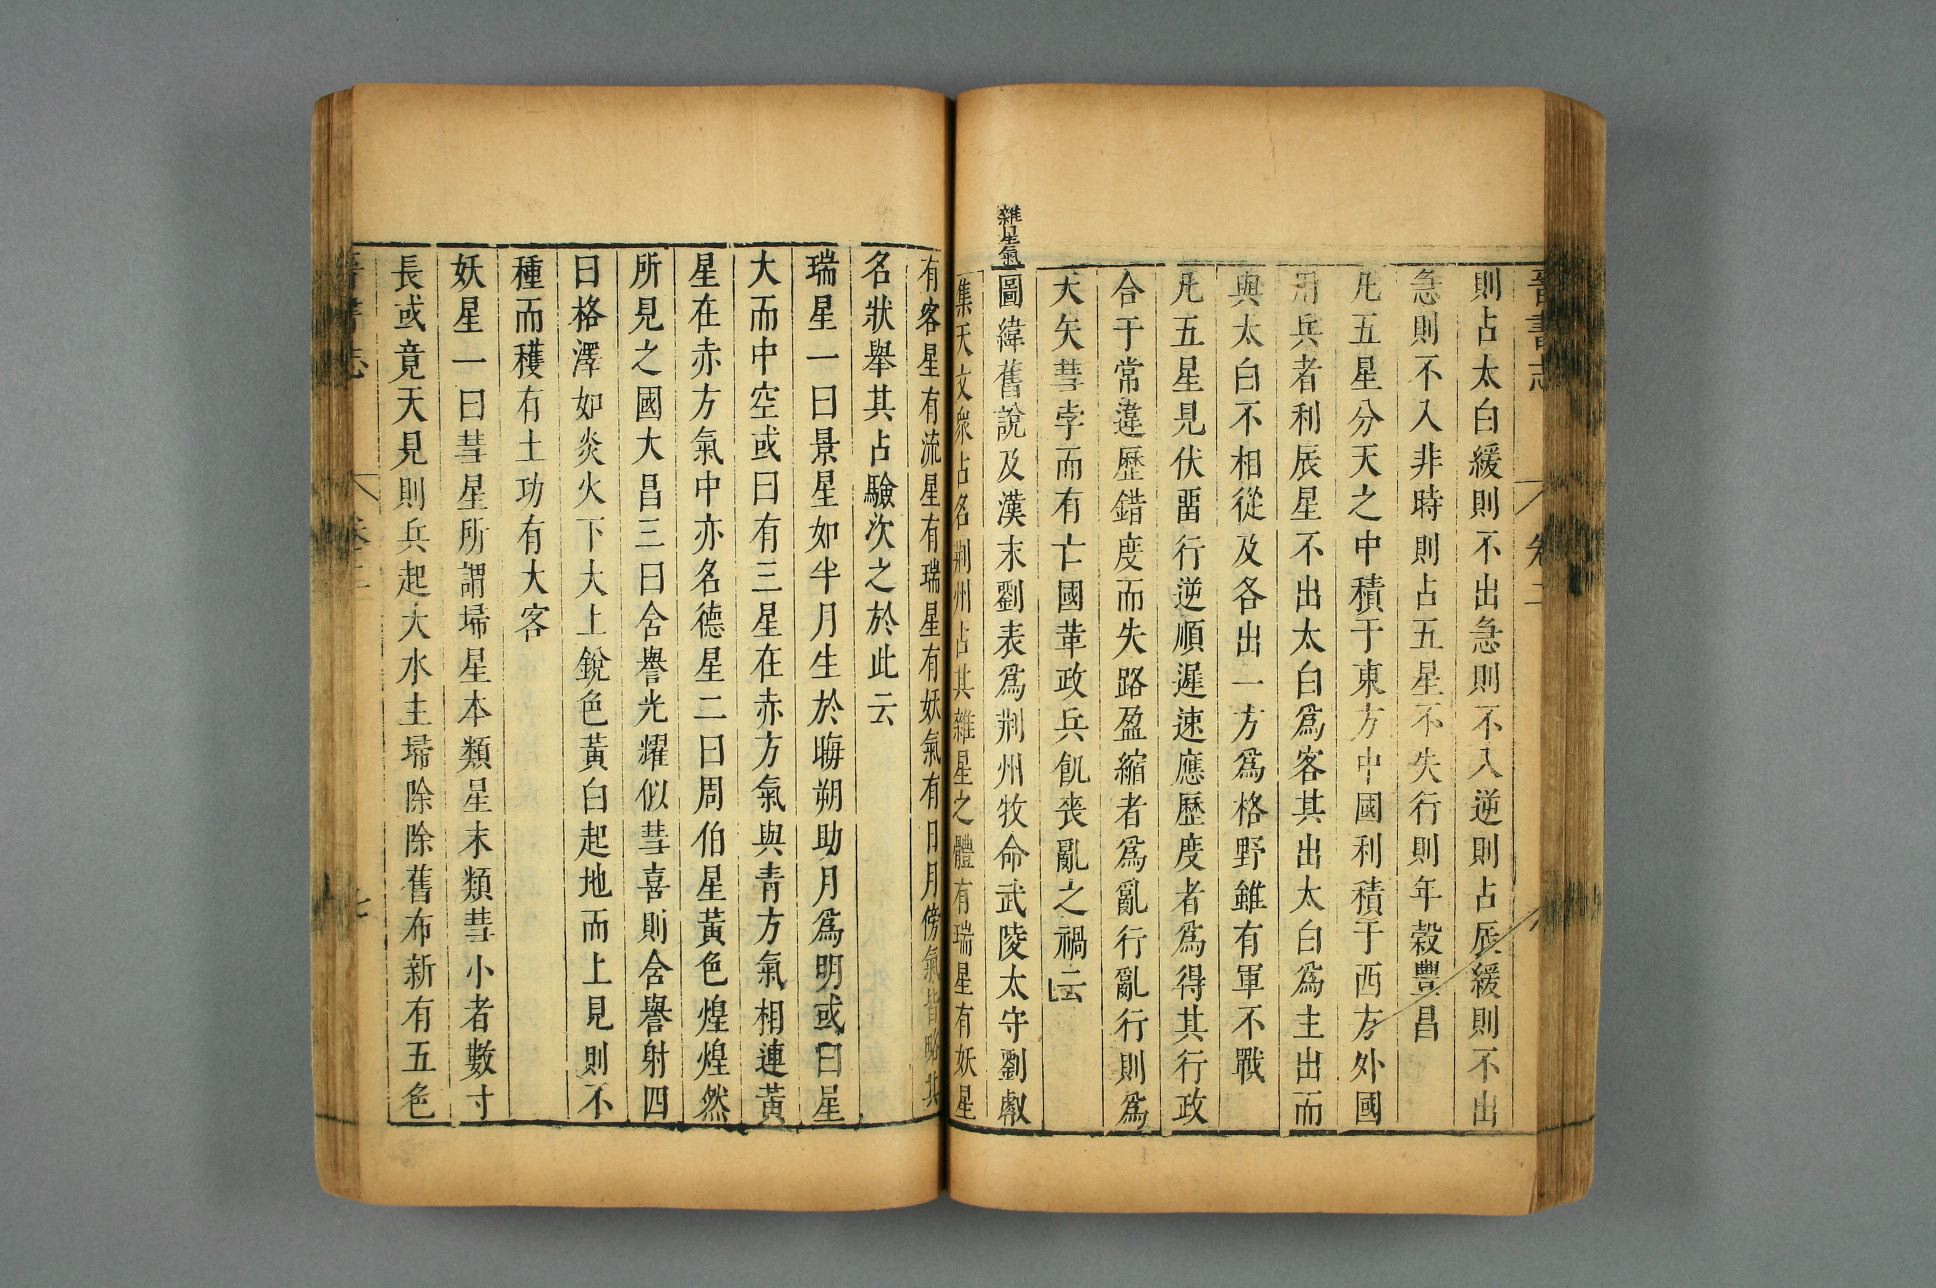 晉書志 卷二
則占太白緩則不出急則不入逆則占辰緩則不出
急則不入非時則占五星不失行則年穀豐昌
凡五星分天之中積于東方中國利積于西方外國
用兵者利辰星不出太白爲客其出太白爲主出而
與太白不相從及各出一方爲格野雖有軍不戰
凡五星見伏畱行逆順遲速應歷度者爲得其行政
合于常違歷錯度而失路盈縮者爲亂行亂行則爲
天矢彗孛而有亡國革政兵飢喪亂之禍云
雜星氣
圖緯舊說及漢末劉表爲荆州牧命武陵太守劉叡
集天文衆占名荆州占其雜星之體有瑞星有妖星
有客星有流星有瑞星有妖氣有日月傍氣皆略其
名狀舉其占驗次之於此云
瑞星一曰景星如半月生於晦朔助月爲明或曰星
大而中空或曰有三星在赤方氣與青方氣相連黃
星在赤方氣中亦名德星二曰周伯星黃色煌煌然
所見之國大昌三曰含譽光耀似彗喜則含譽射四
曰格澤如炎火下大上銳色黃白起地而上見則不
種而穫有土功有大客
妖星一曰彗星所謂埽星本類星末類彗小者數寸
長或竟天見則兵起大水主埽除除舊布新有五色
晉書志 卷二 七